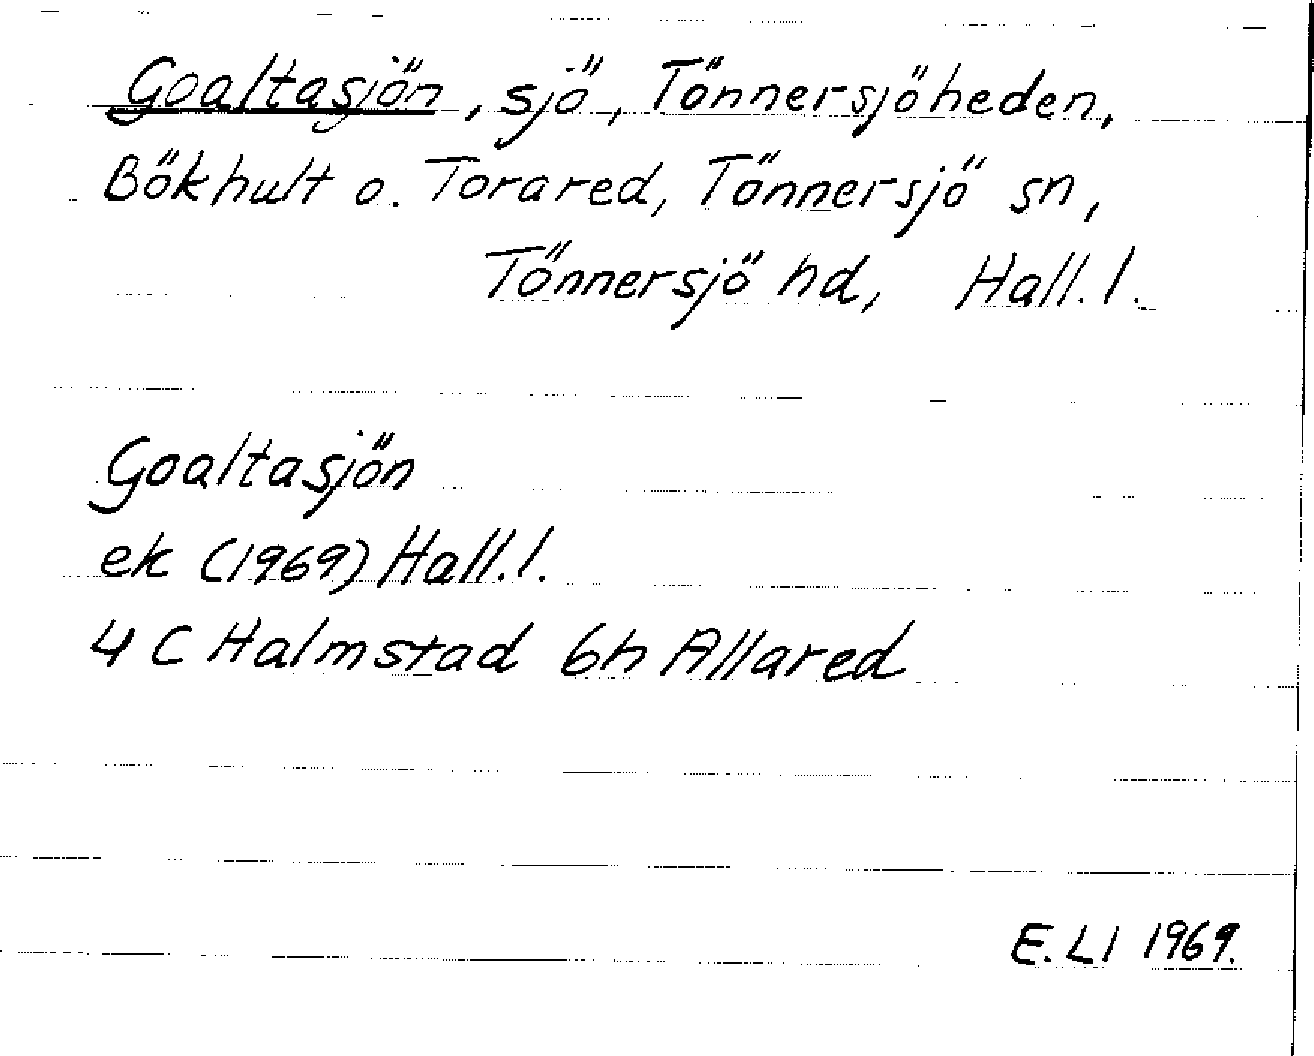 Goaltasjön, sjö, Tönnersjöheden,
Bökhult o. Torared, Tönnersjö sn,
Tönnersjö hd, Hall.l.
Goaltasjön
ek (1969) Hall.l.
4 C Halmstad 6h Allared
E. LI 1969.